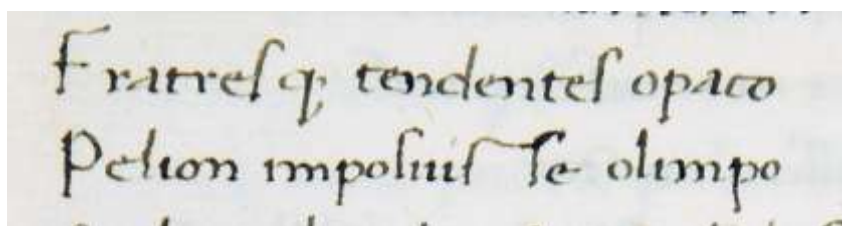 Fratreſq; tendenteſ opaco
Pelion impoſuiſ ſe olimpo